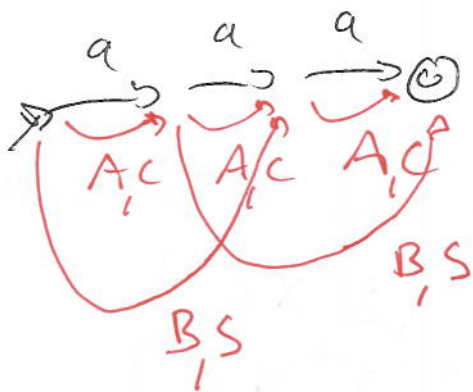 a a a
A,C A,C A,C
B,S
B,S